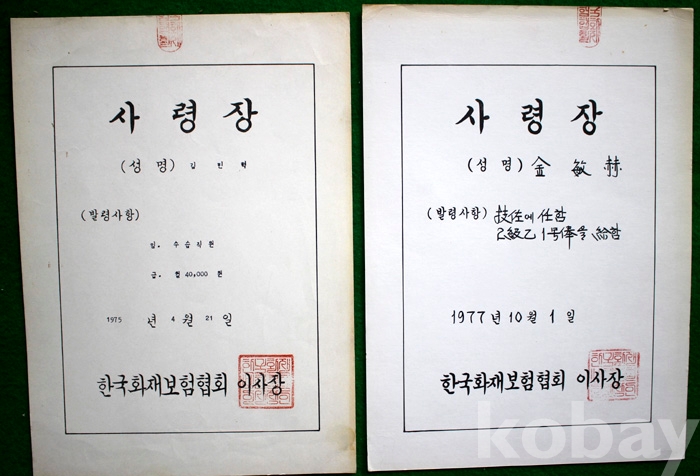 사령장
(성명) 김 민 혁
(발령사항)
임. 수습직원
급. 월 40,000 원
1975 년 4 월 21 일
한국화재보험협회 이사장
사령장
(성명) 金 敏 赫
(발령사항) 技佐에 任함
2級乙 1号俸을 給함
1977 년 10 월 1 일
한국화재보험협회 이사장
kobay